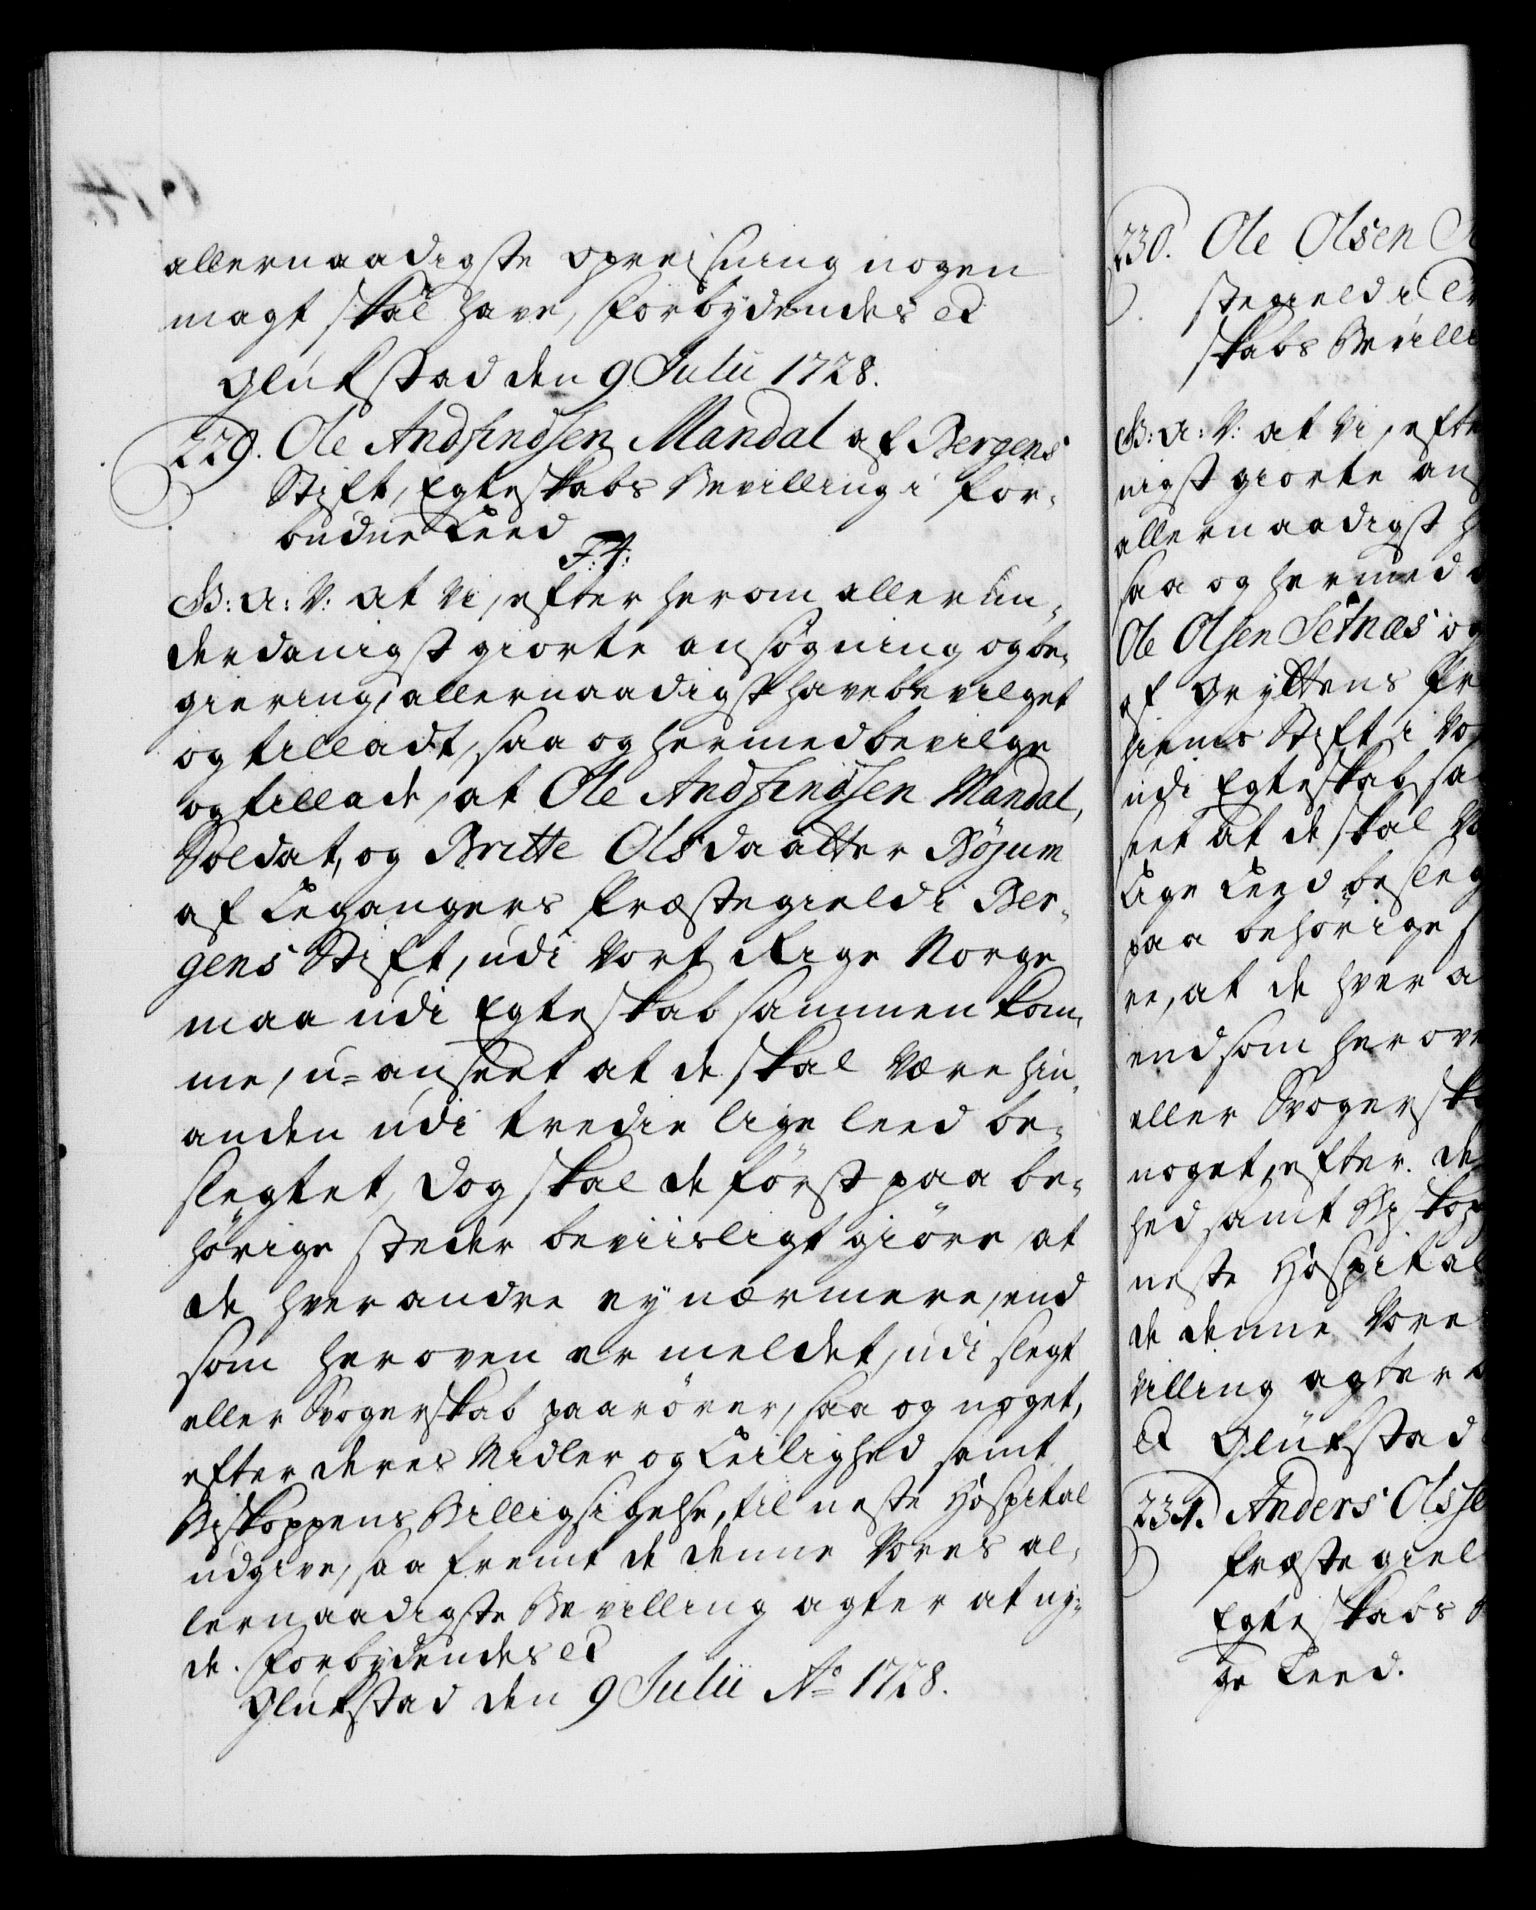 allernaadigste opreisning nogen
magt skal have, forbydendes &c
Glükstad den 9 Julii 1728.
229. Ole Andfindsen Mandal af Bergens
Stift, Egteskabs Bevilling i for-
budne Leed
F: 4:
G: A: V: at Vi, efter herom allerun-
derdanigst giorte ansøgning og be-
giering, allernaadigst have bevilget
og tilladt, saa og hermed bevilge
og tillade, at Ole Andfindsen Mandal,
Soldat, og Britte Olsdaatter Böyum
af Legangers Præstegield i Ber-
gens Stift, udi Vort Rige Norge
maa udi Egteskab sammen kom-
me, u-anseet at de skal være hin-
anden udi tredie lige leed be-
slegtet, dog skal de først paa be-
hörige steder beviisligt giöre, at
de hverandre ey nærmere, end
som her oven er meldet, udi slegt
eller Svogerskab paarörer, saa og noget,
efter deres Midler og Leilighed samt
Biskoppens Billigsigelse, til neste Hospital
udgive, saa fremt de denne Vores al-
lernaadigste Bevilling agter at ny-
de. forbydendes &c
Glükstad den 9 Julii Ao 1728.
230. Ole Olsen
stegield i
skabs Bevilli
G: A: V: at Vi, efte
nigst giorte ans
allernaadigst h
saa og hermed
Ole Olsen Setnæs og
af Gryttens Pr
hiems Stift i Vo
udi Egteskab sa
seet at de skal Væ
lige Leed besleg
paa behörige s
re, at de hver a
end som her ove
eller Svogersk
noget, efter de
hed samt Biskop
neste Hospital
de denne Vore
villing agter a
&c Glükstad
231. Anders Olss
Præstegiel
Egteskabs B
ge Leed.